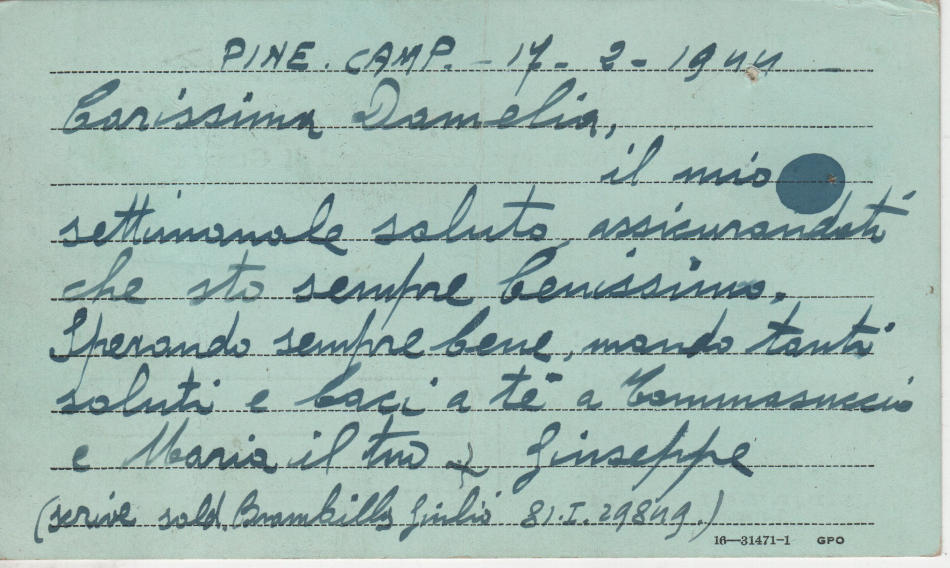 PINE. CAMP. - 17 - 2 - 1944 -
Carissima Damelia,
il mio
settimanale saluto, assicurandoti
che sto sempre benissimo.
Sperando sempre bene, mando tanti
saluti e baci a te a Tommasuccio
e Maria il tuo Giuseppe
(scrive sold. Brambilla Giulio 81.I.29849.)
16—31471-1 GPO